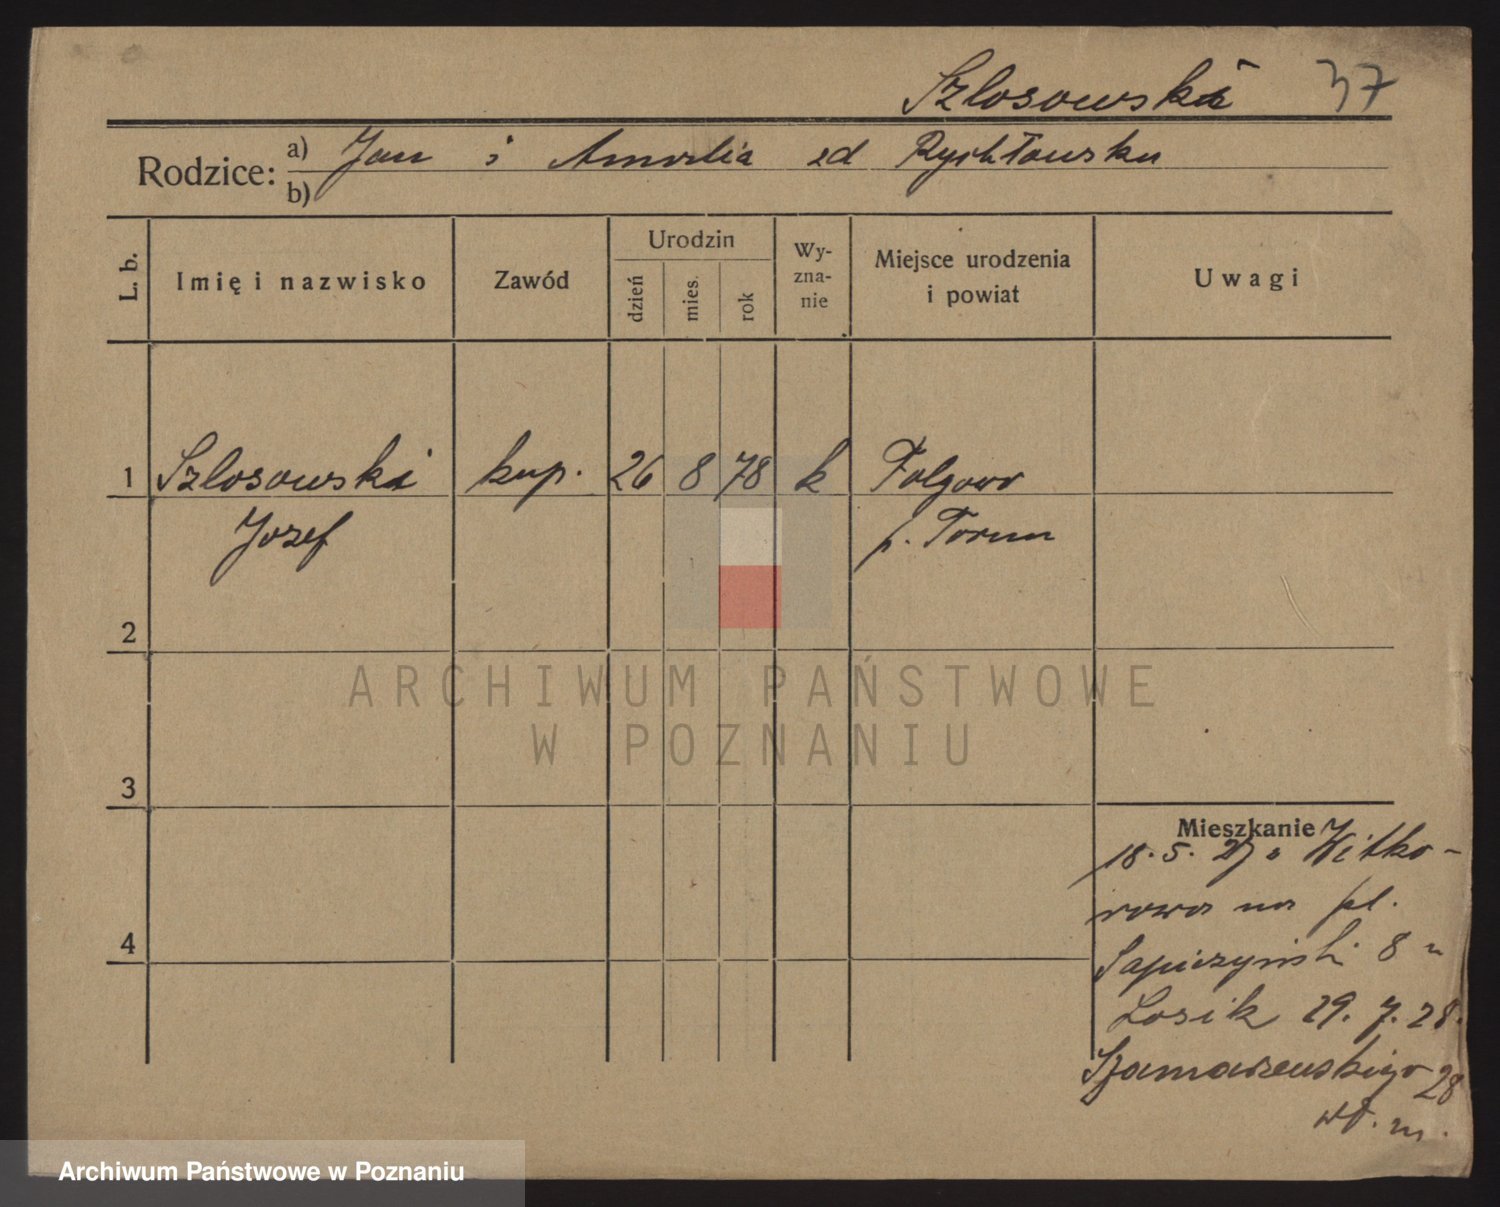 Szlosowski 37
Rodzice: a) Jan i Amalia zd Rychłowska
b)
L. b.
Imię i nazwisko
Zawód
Urodzin
dzień
mies.
rok
Wy-
zna-
nie
Miejsce urodzenia
i powiat
Uwagi
1 Szlosowski kup. 26 8 78 k Folgowo
Jozef p. Torun
2
3
4
Mieszkanie
18. 5. 27 z Witko-
wa na pl.
Sapieżyński 8 u
Losik 29. 7. 28.
Szamarzewskiego 28
wł. m.
ARCHIWUM PAŃSTWOWE
W POZNANIU
Archiwum Państwowe w Poznaniu